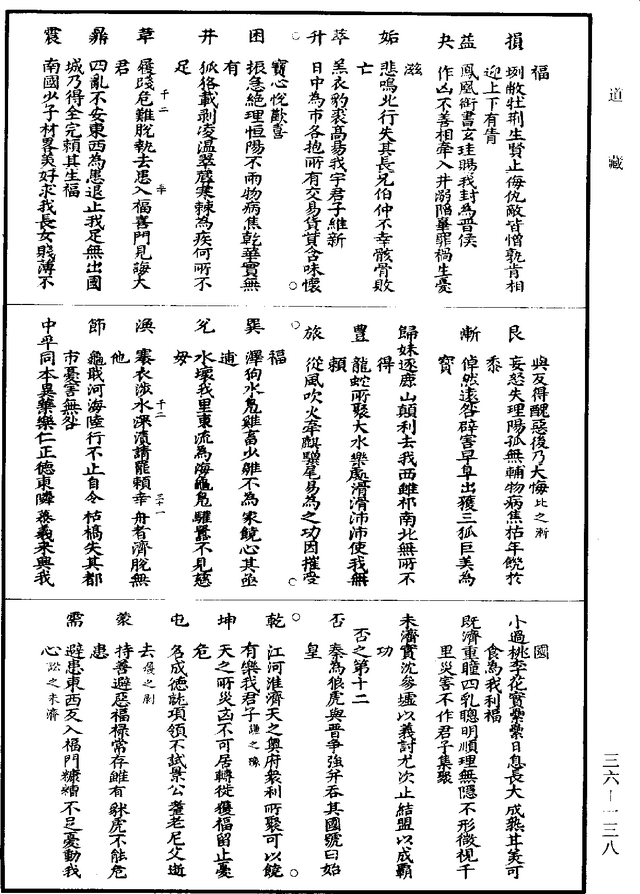 道藏
福
損 剡敝牡荊生賢止侮仇敵皆憎孰肯相
迎上下有眚
益 鳳凰銜書玄珪賜我封為晉侯
夬 作凶不善相牽入井溺陷辜罪禍生憂
滋
姤 悲鳴北行失其長兄伯仲不幸骸骨敗
亡
萃 羔衣豹裘高易我宇君子維新
升 日中為市各抱所有交易貨貲含味懷
寶心悅歡喜
困 振急絕理恒陽不雨物病焦乾華實無
有
井 狐狢載剝凌溫翠厝寒棘為疾何所不
足
革 履踐危難脫執去患入福喜門見誨大
君
鼎 四亂不安東西為患退止我足無出國
城乃得全完賴其生福
震 南國少子材畧美好求我長女賤薄不
與反得醜惡後乃大悔比之漸
艮 妄怒失理陽孤無輔物病焦枯年饑於
黍
漸 倬然遠咎辟害早阜出獲三狐巨美為
寶
歸妹 逐鹿山顛利去我西雖祁南北無所不
得
豐 龍蛇所聚大水樂處滑滑沛沛使我無
賴
旅 從風吹火牽麒驥尾易為之功因摧受
福
巽 澤狗水鳧雖畜少雛不為家饒心其亟
逋
兌 水壞我里東流為海龜鳧驩嚻不見慈
母
渙 褰衣涉水深漬請罷賴幸舟者濟脫無
他
節 龜厭河海陸行不止自令枯槁失其都
市憂害無咎
中孚 同本異葉樂仁正德東隣慕義來興我
國
小過 桃李花實纍纍日息長大成熟甘美可
食為我利福
既濟 重瞳四乳聰明順理無隱不形微視千
里災害不作君子集聚
未濟 實沈參墟以義討尤次止結盟以成霸
功
否之第十二
否 秦為狼虎與晉爭強弁吞其國號曰始
皇
乾 江河淮濟天之奧府衆利所聚可以饒
有樂我君子謙之豫
坤 天之所災凶不可居轉徙獲福留止憂
危
屯 名成德就項領不試景公耋老尼父逝
去
蒙 持善避惡福祿常存雖有豺虎不能危
患
需 避患東西反入福門糠糟不足憂動我
心訟之未濟
三六—一三八